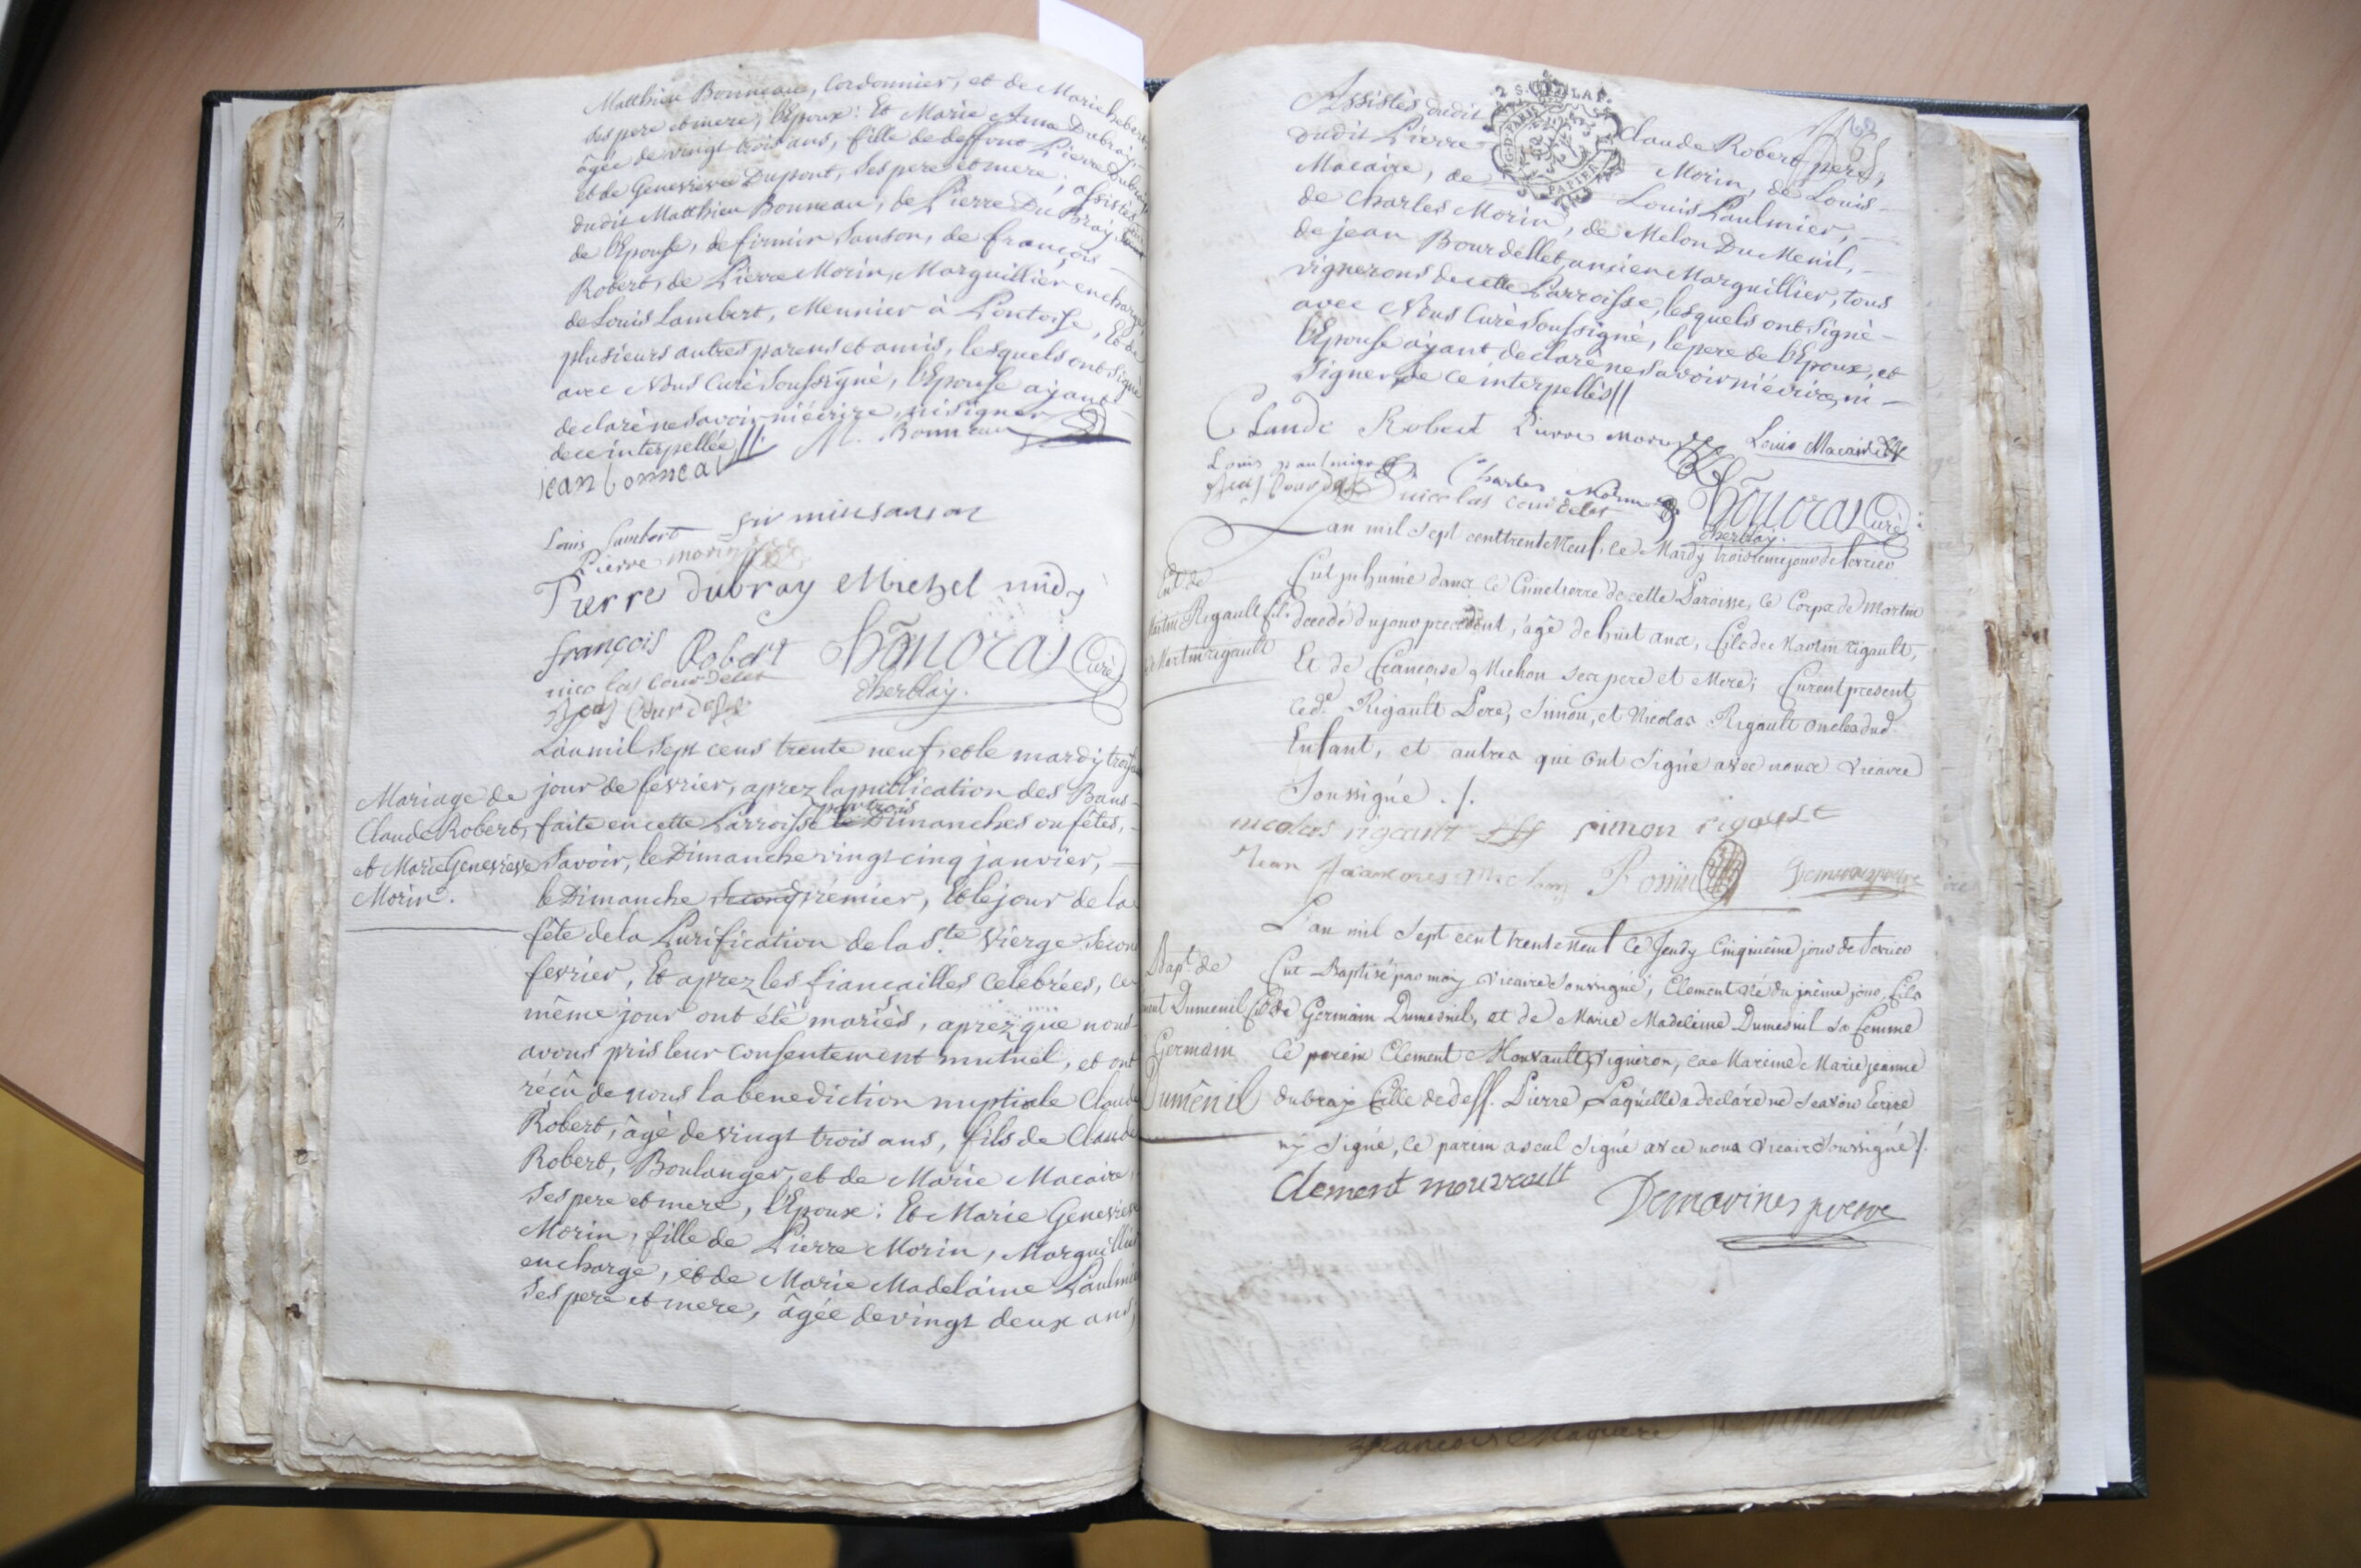 Matthieu Bonneau, Cordonnier, et de Marie hebert
ses pere et mere, l'Epoux: Et Marie Anne Dubray
âgée de vingt trois ans, fille de deffunt Pierre Dubray
et de Genevieve Dupont, ses pere et mere; assistés
dudit Matthieu Bonneau, de Pierre Du Bray
de l'Epouse, de firmin Sanson, de françois
Robert, de Pierre Morin, Marguillier en charge,
de Louis Lambert, Meunier à Pontoise, Et de
plusieurs autres parens et amis, lesquels ont signé
avec Nous Curé soussigné, l'Epouse ayant
declaré ne savoir ni écrire, ni signer
de ce interpellée //. M. Bonneau
jean bonneau
Louis Lambert firmin sanson
Pierre morin
Pierre dubray Michel
françois Robert Honoras Curé
nicolas d'herblay.
L'an mil sept cens trente neuf, et le mardy
jour de fevrier, aprez la publication des Bans
par trois
faite en cette Parroisse Dimanches ou fêtes,
savoir, le Dimanche vingt cinq janvier,
le Dimanche premier, Et le jour de la
fête de la Purification de la Ste Vierge second
fevrier, Et aprez les fiancailles celebrées, ce
même jour ont été mariés, aprez que nous
avons pris leur consentement mutuel, et ont
réçû de nous la benediction nuptiale Claude
Robert, âgé de vingt trois ans, fils de Claude
Robert, Boulanger, et de Marie Macaire,
ses pere et mere, l'Epoux: Et Marie Genevieve
Morin, fille de Pierre Morin, Marguillier
en charge, et de Marie Madelaine Paulmier
ses pere et mere, âgée de vingt deux ans,
Mariage de
Claude Robert,
et Marie Genevieve
Morin.
Assistés dudit Claude Robert pere,
dudit Pierre Morin, de Louis
Macaire, de Louis Paulmier,
de Charles Morin, de Melon Du Menil,
de jean Bourdellet, ancien Marguillier, tous
vignerons de cette Parroisse, lesquels ont signé
avec Nous Curé soussigné, le pere de l'Epoux, et
l'Epouse ayant declaré ne savoir ni écrire, ni
signer, de ce interpellés //
Claude Robert Pierre morin Louis Macaire
Louis paulmier Charles Morin
nicolas Honoras Curé
d'herblay.
L'an mil sept cent trente Neuf, le Mardy troisieme jour de fevrier
fut jnhumé dans le Cimetierre de cette Paroisse, le Corps de Martin
decedé du jour precedent, âgé de huit ans, fils de Martin rigault,
Et de francoise Michon ses pere et Mere; furent present
led. Rigault Pere, Simon, et Nicolas Rigault oncles dud.
Enfant, et autres qui ont signé avec nous vicaire
Soussigné ./.
Martin Rigault fils
de Martin rigault
nicolas rigault simon rigault
L'an mil sept cent trente neuf le Jeudy Cinquiême jour de fevrier
fut Baptisé par moy vicaire soussigné, Clement né du même jour, fils
de Germain Dumesnil, et de Marie Madeleine Dumesnil sa femme
le parein Clement Mouvault, vigneron, la Mareine Marie jeanne
dubray fille de deff. Pierre, Laquelle a declaré ne scavoir Ecrire
ny signé, le parein a seul signé avec nous vicaire soussigné /.
Bapt. de
Dumenil fils de
Germain
Dumênil
Clement mouvault
Demarines